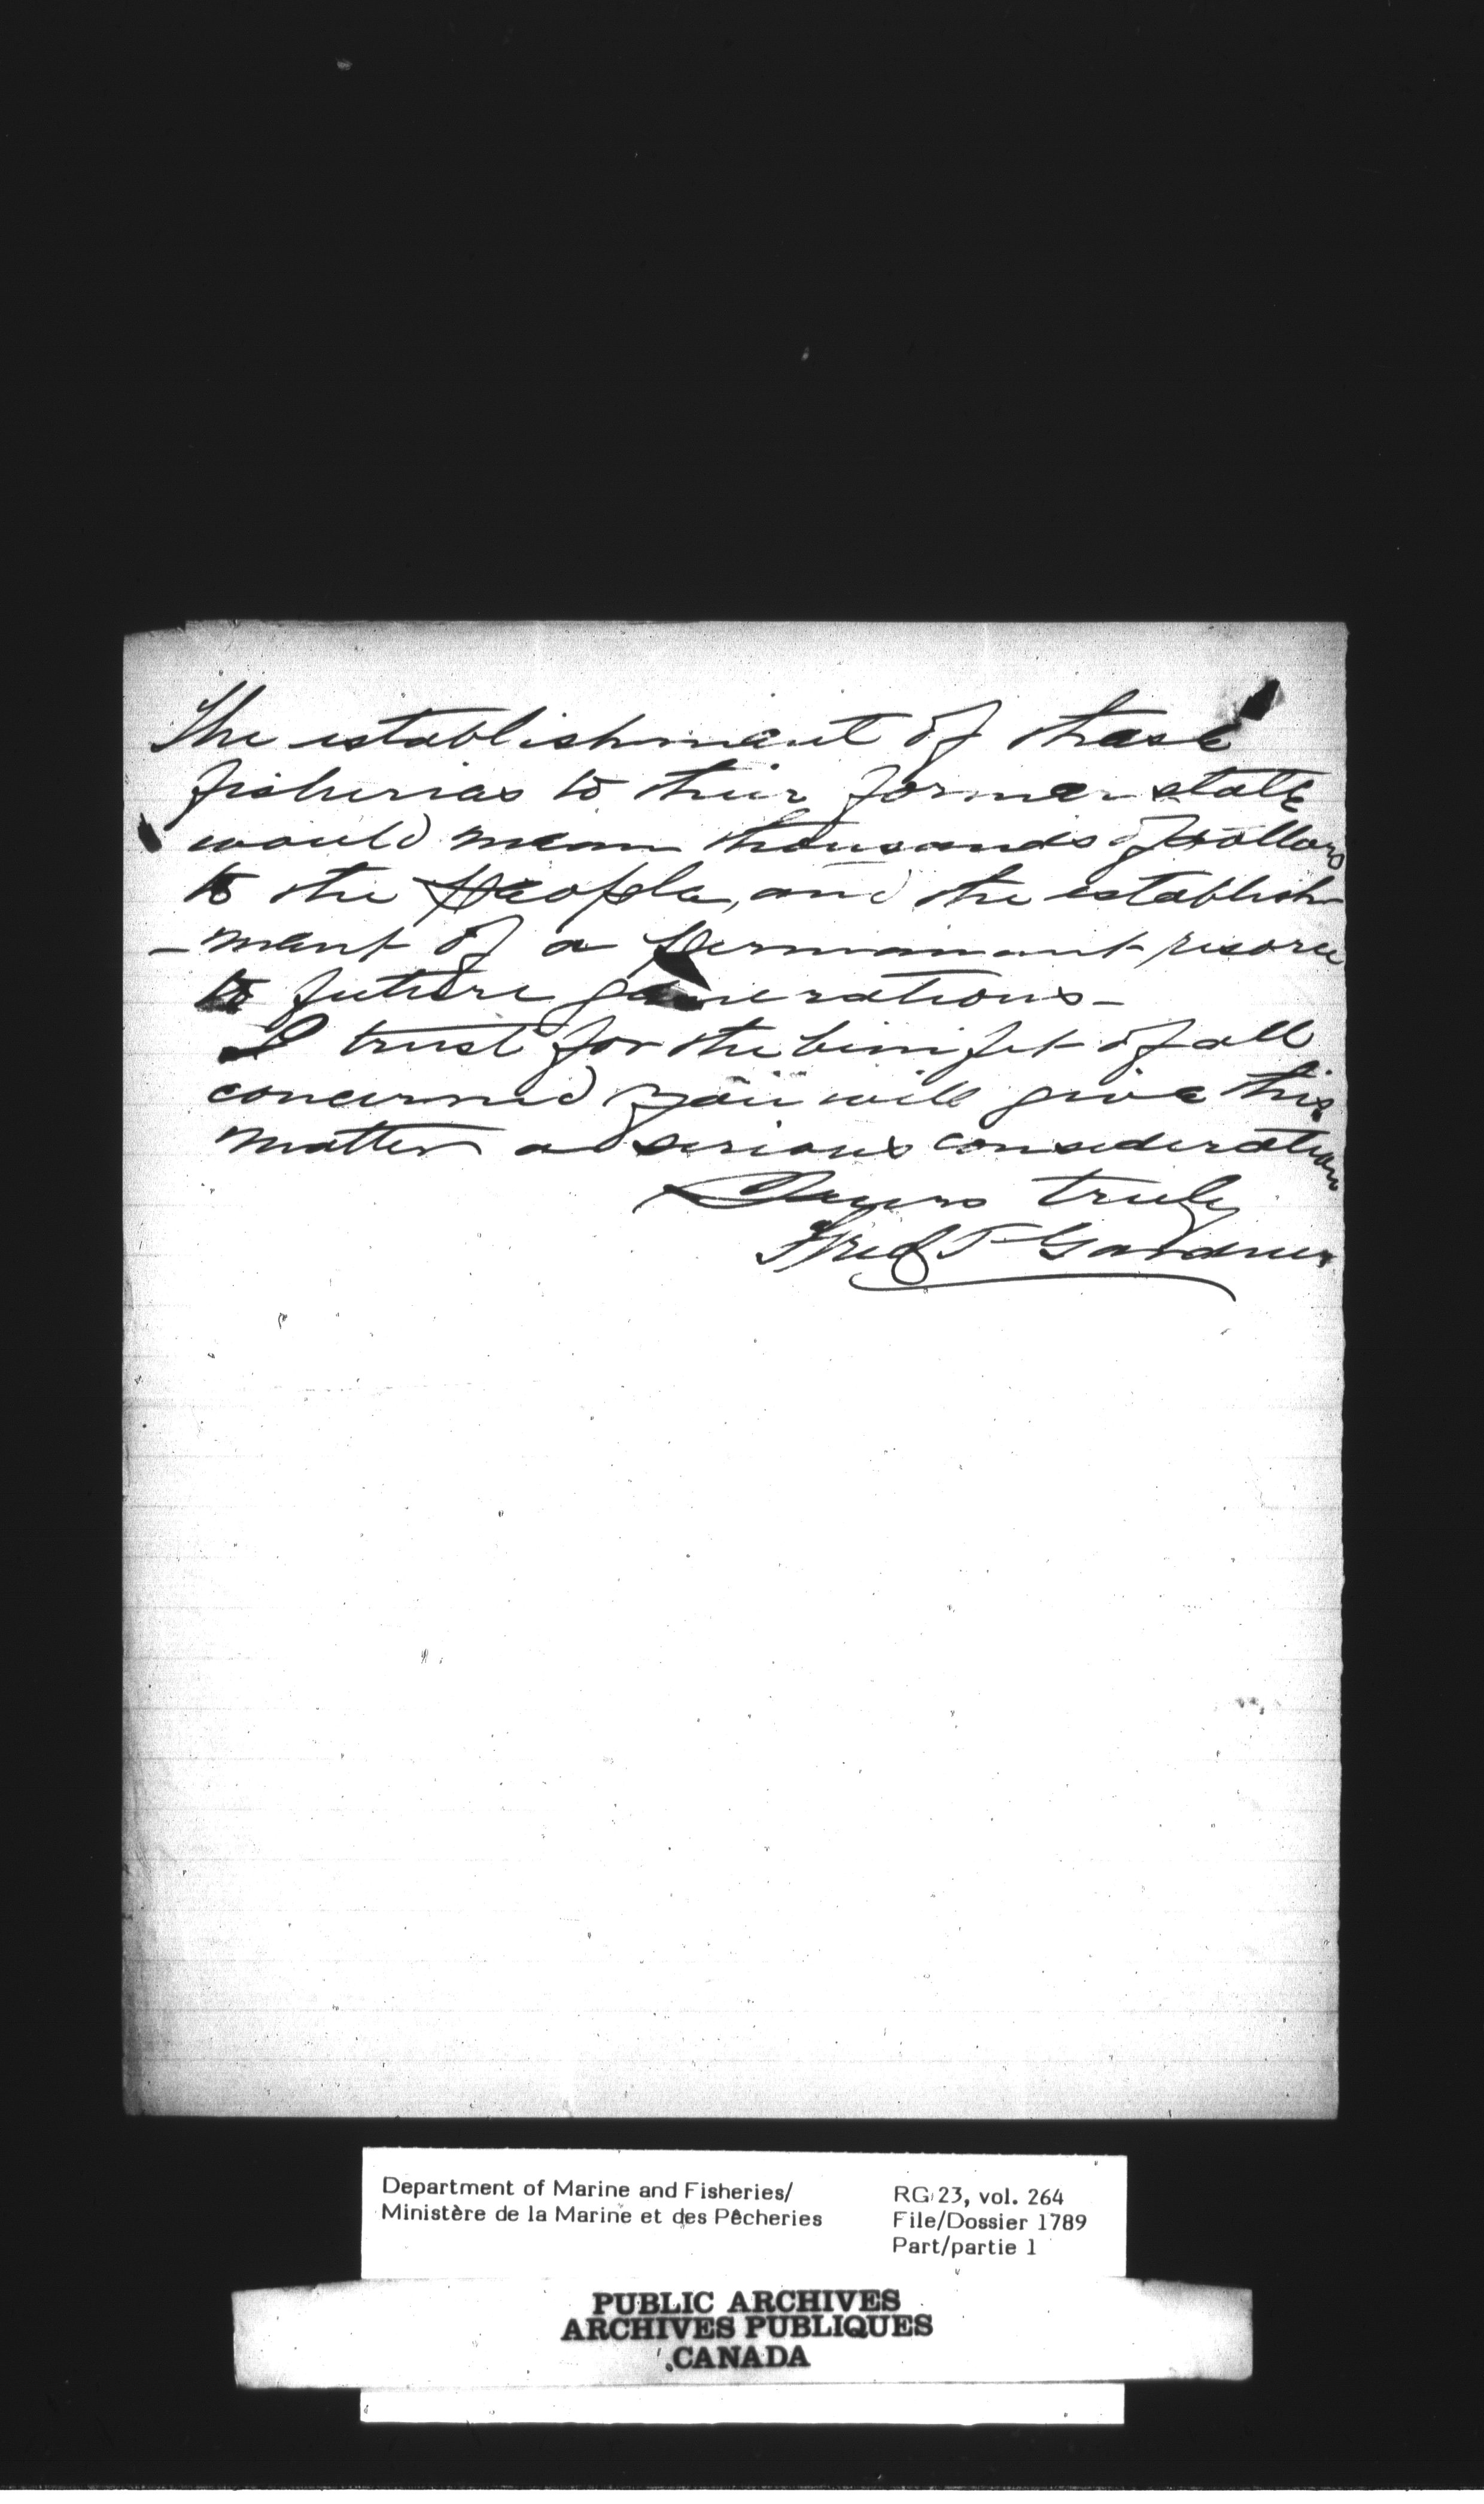 The establishment of these
fisheries to their former state
would mean thousands of dollars
to the people, and the establish-
-ment of a permanent
to future generations-
I trust for the benifit of all
concerned you will give this
matter a serious consideration
Yours truly
Fred T Gardner
Department of Marine and Fisheries/
Ministère de la Marine et des Pêcheries
RG 23, vol. 264
File/Dossier 1789
Part/partie 1
PUBLIC ARCHIVES
ARCHIVES PUBLIQUES
CANADA